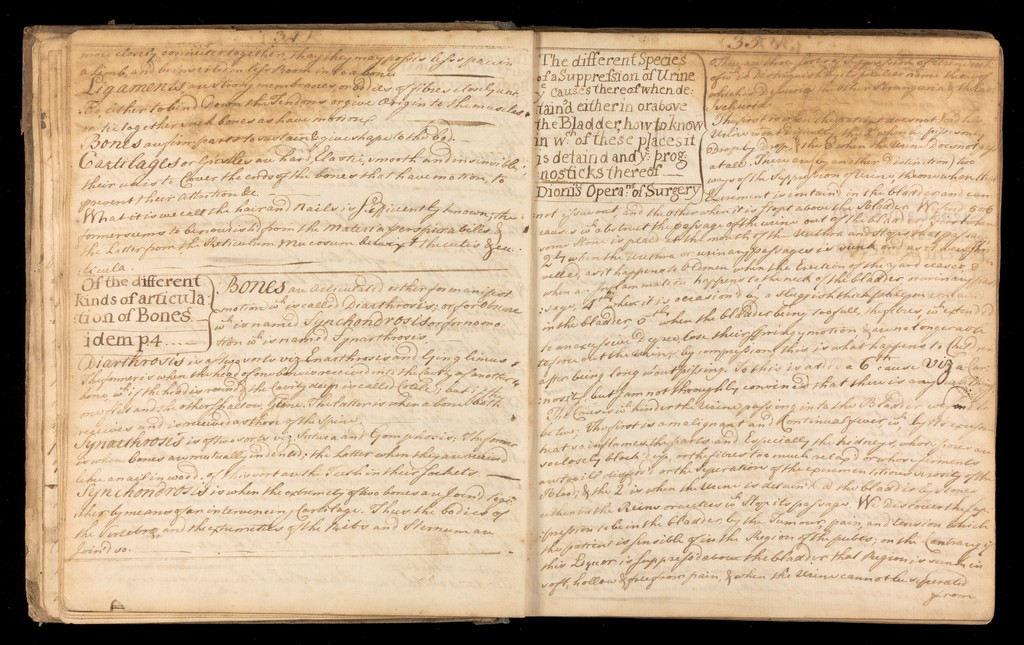 34
more closely connected together, that they may possess less space in
a limb, and be inserted in less room into a bone.
Ligaments are strong membranes or bodies of fibres closely
either to bind down the Tendons or give Origin to the muscles
or tie together such bones as have motion.
Bones are firm parts to sustain & give shape to the Body.
Cartilages or Gristles are hard, Elastic, smooth and insensible;
their use is to Cover the ends of the bones that have motion, to
prevent their attrition &c
What it is we call the hair and Nails is sufficiently known; the
former seems to be nourished from the Materia perspirabilis, &
the Latter from the Reticulum Mucosum betwixt the cutis & cu-
ticula.
Of the different
kinds of articula
:tion of Bones
idem p4
Bones are articulated either for manifest
motion wch is called Diarthrosis, or for Obscure
wch is named Synchondrosis or for no mo
tion wch is named Synarthrosis.
Diarthrosis is of two sorts viz Enarthrosis and Ginglimus:
The former is when the head of one bone is received into the Cavity of another
bone, wch if the head is round & the Cavity deep is called Cotile; but if the
one is flat and the other shallow, Glene. The latter is when a bone both
receives and is received as those of the Spine
Synarthrosis is of two sorts viz Sutura and Gomphosis; The former
is when bones are mutually indented; the Latter when they are received
like a nail in wood. of this sort are the Teeth in their Sockets.
Synchondrosis is when the extremity of two bones are joined toge
ther by means of an intervening Cartilage. Thus the bodies of
the Vertebræ and the extremities of the Ribs and Sternum are
joined so.
35
The different Species
of a Suppression of Urine
ye causes thereof when de:
tain'd either in or above
the Bladder, how to know
in wch of these places it
is detain'd and ye prog
nosticks thereof
Dionis Opera:ns of Surgery
There are three sorts of Suppression of Urine
of wch is distinguish'd by its peculiar name the
which is Dysuria the other Stranguria & the last
Ischuria
The first is when the patient does not
Urine without difficulty, the 2d when he pisses only
drop by drop, & the 3d when the Urine does not pass
at all. There are by another distinction two
ways of the Suppression of Urine, the one when that
Excrement is contained in the bladder and can
not issue out, and the other when it is stopt above the Bladder. We find 5 or 6
causes wch obstruct the passage of the urine out of the bladder; first when
some stone is placed at the mouth of the Urethra and stops that passage
2ly when the Urethra or urinary passages is sunk and as it were
velled, as it happens to Old men, when the Erection of the yard ceases; 3
when an inflammation happens to the neck of the bladder or urinary pas
sage, 4th when it is occasion'd by a sluggish thick phlegm
in the bladder, 5th when the bladder being too full, the fibres, wch extended
to an excessive degree, lose their springy motion & are no longer able
to force out the Urine by compression; this is what happens to
after being long without pissing. To this is added a 6th cause viz a Car:
:nosity; but I am not throughly convinced that there is any
The Causes wch hinder the Urine passing into the Bladder we find to
be two: The first is a malignant and Continual fever wch by its excessive
heat so inflames the parts, and Especially the kidneys, whose pores are
so closely block'd up, or the fibres too much relax'd or whose ferments
are too ill dispos'd for the Separation of the excrementitious Serosity of the
blood; & the 2d is when the Urine is detain'd in the bladder by stones
either in the Reins or Ureters wch Stop its passage. We discover the sup
:pression to be in the bladder, by the Tumour, pain and tension which
the patient is sensible of in the Region of the pubes; on the Contrary if
this Liquor is suppress'd above the bladder that Region is sunk in
soft, hollow & free from pain, & when the Urine cannot be seperated
from